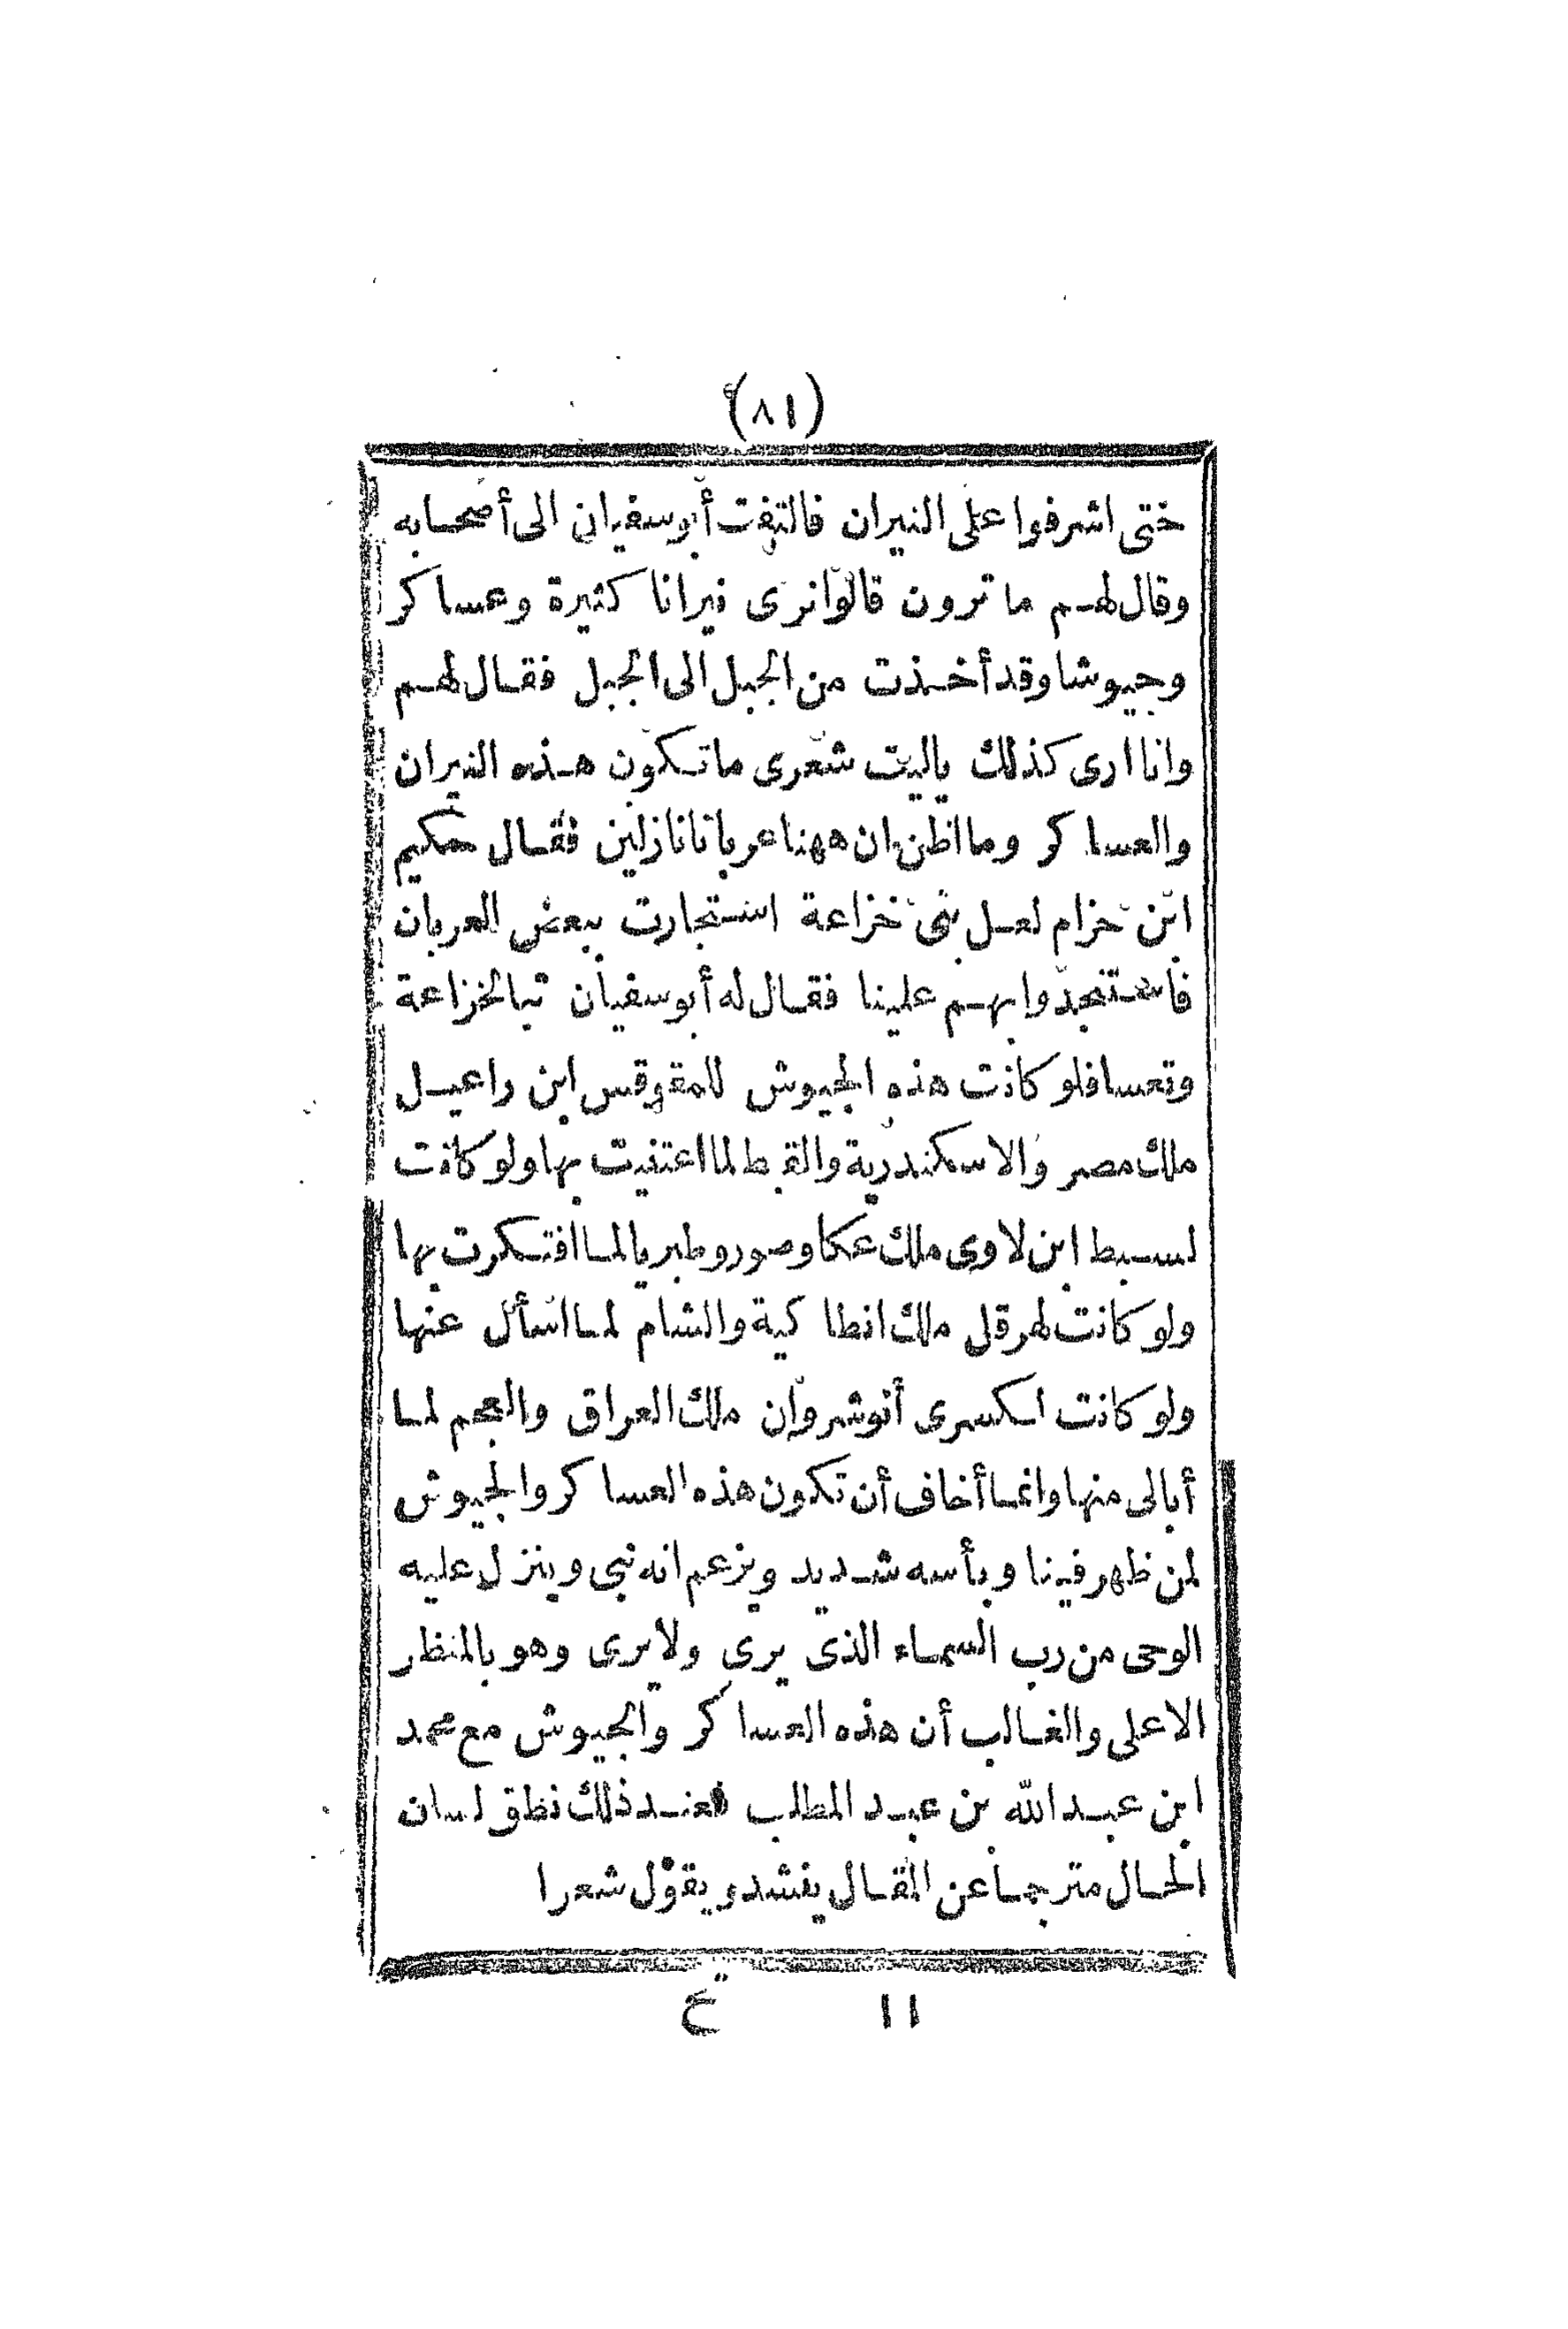 (٨١)
حتى اشرفوا على النيران فالتفت أبوسفيان الى أصحابه
وقال لهم ما ترون قالوا نرى نيرانا كثيرة وعساكر
وجيوشا وقد أخذت من الجبل الى الجبل فقال لهم
وانا ارى كذلك ياليت شعرى ما تكون هذه النيران
والعساكر وما اظن ان ههنا عربانا نازلين فقال حكيم
ابن حزام لعل بنى خزاعة استجارت ببعض العربان
فاستنجدوا بهم علينا فقال له أبوسفيان تبا لخزاعة
وتعسا فلو كانت هذه الجيوش للمقوقس ابن راعيل
ملك مصر والاسكندرية والقبط لما اعتنيت بها ولو كانت
لسبط ابن لاوى ملك عكا وصور وطبريا لما افتكرت بها
ولو كانت لهرقل ملك انطاكية والشام لما اسأل عنها
ولو كانت لكسرى أنوشروان ملك العراق والعجم لما
أبالى منها وانما أخاف أن تكون هذه العساكر والجيوش
لمن ظهر فينا وبأسه شديد ويزعم انه نبى وينزل عليه
الوحى من رب السماء الذى يرى ولا يرى وهو بالمنظر
الاعلى والغالب أن هذه العساكر والجيوش مع محمد
ابن عبد الله بن عبد المطلب فعند ذلك نطق لسان
الحال مترجما عن المقال ينشد ويقول شعرا
١١ ع